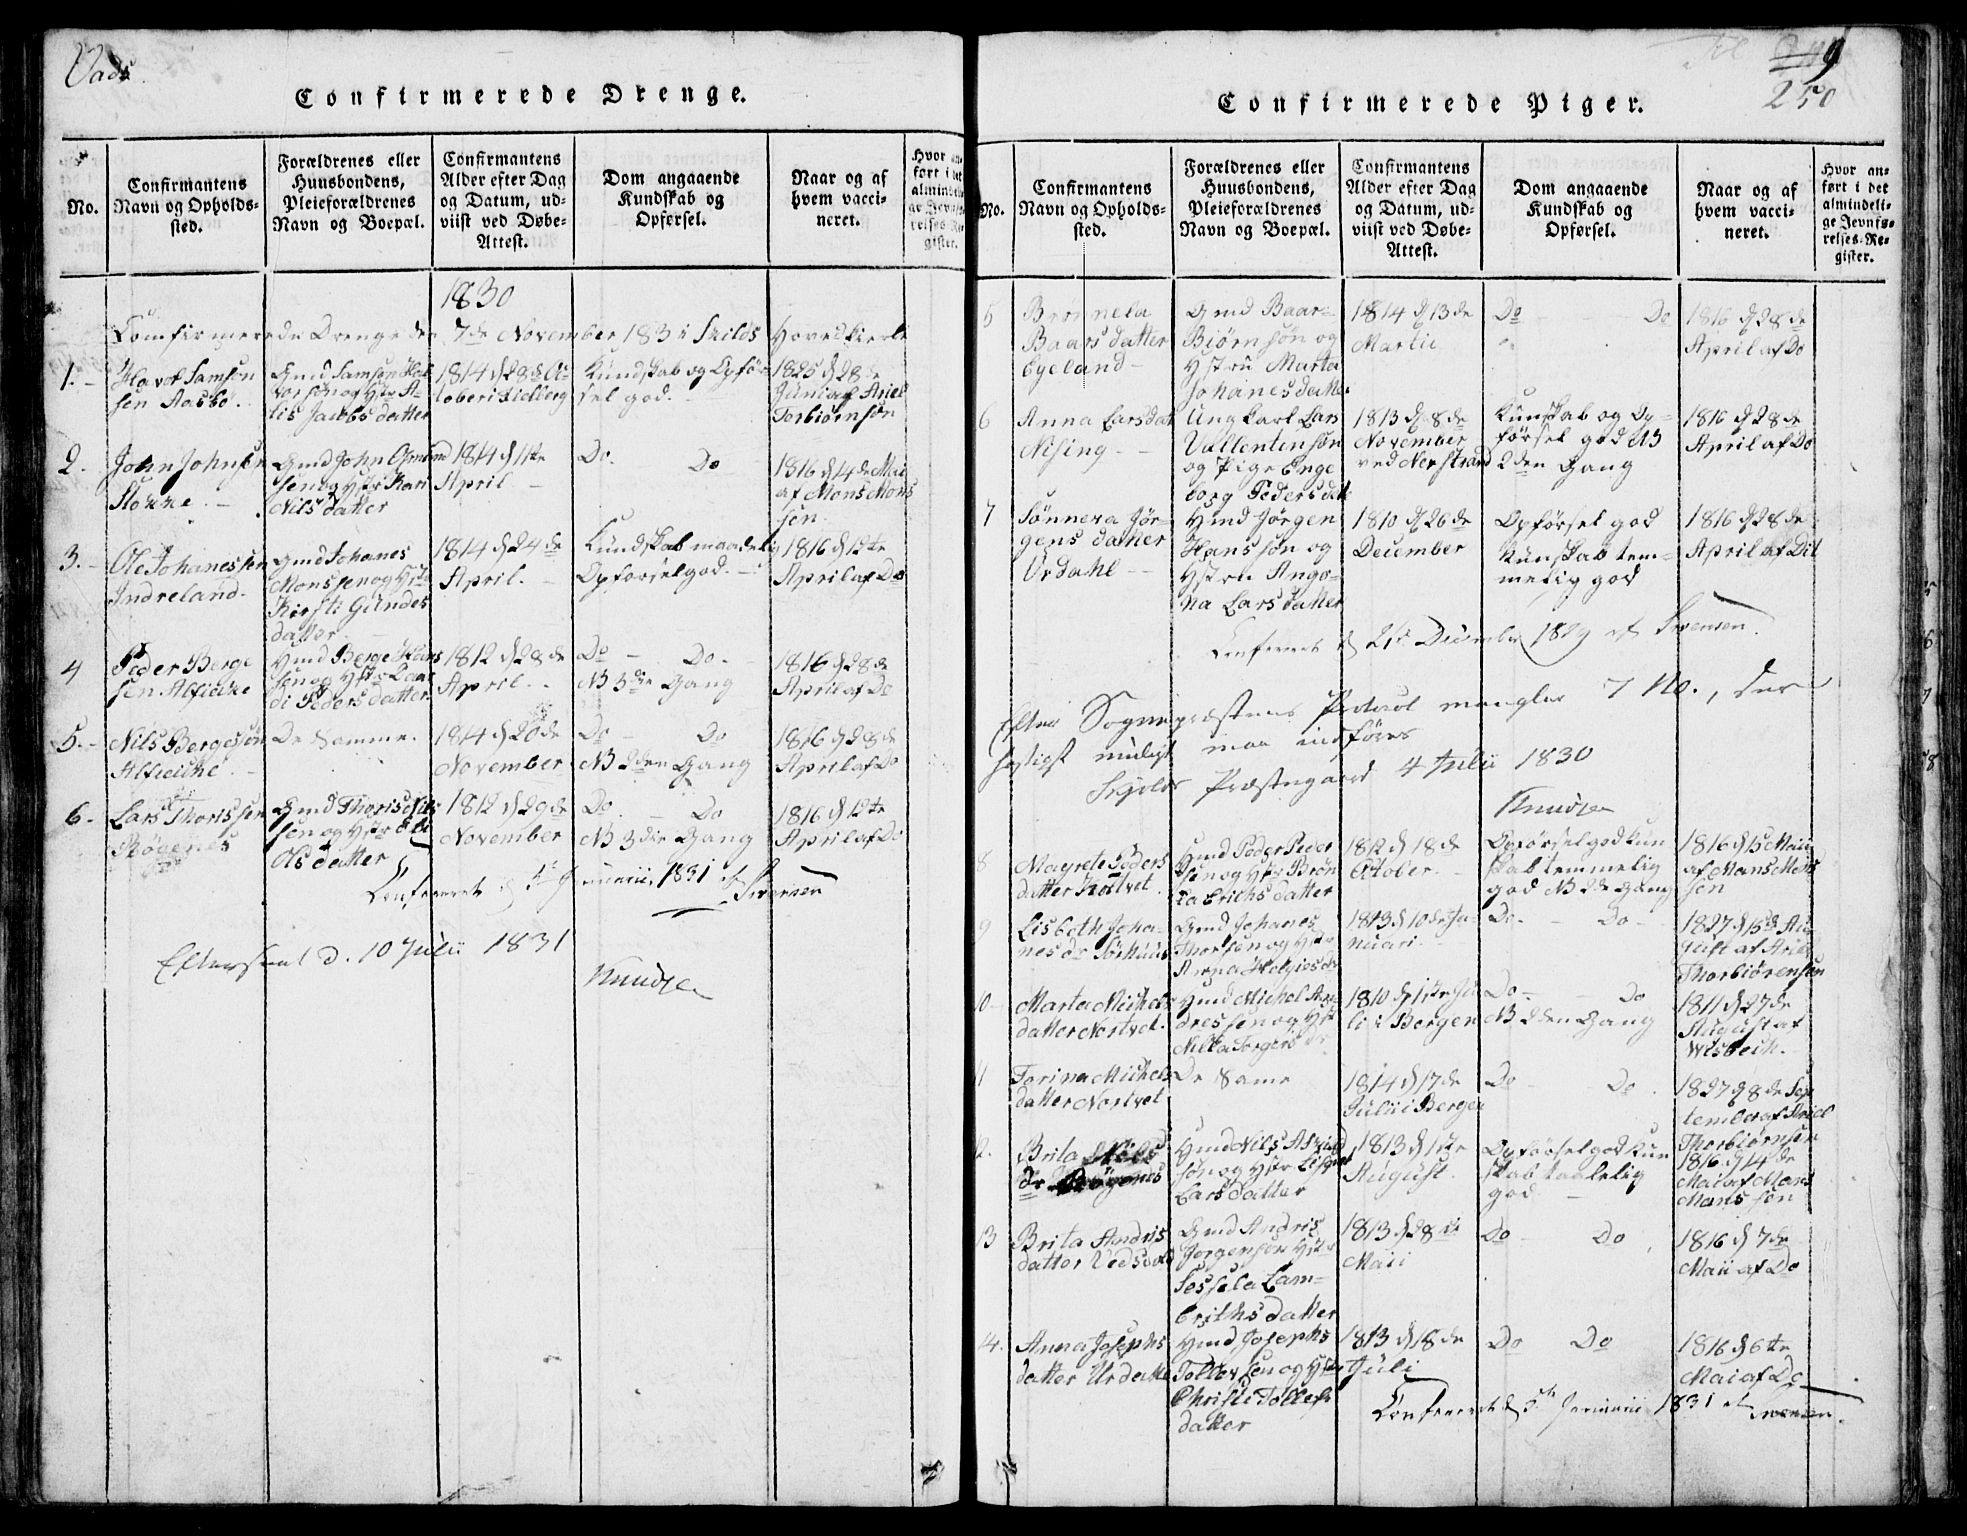 Vads
Confirmerede Drenge.
No.
Confirmantens
Navn og Opholds-
sted.
Forældrenes eller
Huusbondens,
Pleieforældrenes
Navn og Boepæl.
Confirmantens
Alder efter Dag
og Datum, ud-
viist ved Døbe-
Attest.
Dom angaaende
Kundskab og
Opførsel.
Naar og af
hvem vacci-
neret.
Hvor an-
ført i det
almindeli-
ge Jevnfø-
relses-Re-
gister.
1830
Comfirmerede Drenge den 7de November 183 i Skilds Hovedkierke
1.
Havor Samson
sen Aasbö.
Gmd Samson Hal
vorsön og Hstr A-
lis Jacobsdatter
1814 d 28de Oc-
tober i Lidberg
Kundskab og Opför-
sel god.
1825 d 28de
Junii af Ariel
Torbiörnsön
2.
John Johnsen
Stokke.
Gmd John Osmund
sen og Hstr Kari
Nilsdatter
1814 d 11te
April
Do. Do
1816 d 4de Mai
af Mons Mons
sen.
3.
Ole Johanessen
Indreland.
Gmd Johanes
Monssen og Hstr
Kirsti Gundes
datter
1814 d 24de
April.
Kundskab maadelig
Opförsel god.
1816 d 12te
April af Do
4
Peder Berge
sen Alfieike
Hmd Berge Hans
sen og Hstr Baar
di Pedersdatter
1812 d 28de
April.
Do Do.
NB 3die Gang
1816 d 28de
April af Do
5.
Nils Bergesön
Alfieike
De Samme.
1814 d 20de
November
Do Do
NB 2den Gang
1816 d 28de
April af Do
6.
Lars Thorissen
Bögenes
Gmd Thoris Nils
sen og Hstr
Olsdatter
1812 d 29de
November
Do Do
NB 3die Gang
1816 d 12te
April af Do
Confereret d 5t Januarii 1831 af Svensen
Efterseet d. 10 Julii 1831
Knudsen
250
Confirmerede Piger.
No.
Confirmantens
Navn og Opholds-
sted.
Forældrenes eller
Huusbondens,
Pleieforældrenes
Navn og Boepæl.
Confirmantens
Alder efter Dag
og Datum, ud-
viist ved Døbe-
Attest.
Dom angaaende
Kundskab og
Opførsel.
Naar og af
hvem vacci-
neret.
Hvor an-
ført i det
almindeli-
ge Jevnfø-
relses-Re-
gister.
5
Brönnela
Baarsdatter
Eyeland
Gmd Baar-
Biörnsön og
Hstru Marta
Johanesdatter
1814 d 13de
Martii
Do Do
1816 d 28de
April af Do
6
Anna Larsdat
Nising
Ungkarl Lars
Vallentinsön
og Pige Inge
borg Pedersdatt
1813 d 8de
November
ved Nerstrand
Kunskab og Op-
försel god NB
2den Gang
1816 d 28de
April af Do
7
Sönneva Jör-
gensdatter
Ørdahl
Hmd Jörgen
Hanssön og
Hstru Ango-
na Larsdatter
1810 d 26de
December
Opförsel god
Kunskab tem-
melig god
1816 d 28de
April af Dit
Confereret d 21de December 1829 af Svensen.
Efter Sognepræstens Protocol mangler 7 No., der
hastigst muligt maa indföres
Skjolds Præstegaard 4 Julii 1830
Knudsen
8
Magrete Peders
datter Nortvet.
Hmd Peder Peder
sen og Hstr Brön
la Erichsdatter
1812 d 18de
October.
Opförsel god Kun
skab temmelig
god NB 2de Gang
1816 d 15 Maii
af Mons Mons
sen
9
Lisbeth Joha-
nes dr Sörhuus
Gmd Johanes
Thorsen og Hstr
Anna Helgies dr
1813 d 10de Ja-
nuari.
Do. Do
1827 d 15de Au-
gust af Ariel
Thorbiörensen
10
Marta Michels
datter Nortvet.
Hmd Michel An-
dressen og Hstr
1810 d 1ste Ju
li i Bergen
Do Do
NB 2den Gang
1811 d 27de
August af
Wisbech.
11
Torina Michels
datter Nortvet
De Same
1814 d 17de
Julii i Bergen
Do Do.
1827 d 8de Sep
tember af Ariel
Thorbiörnsen
12.
Brita Nils
dr Bögenes
Hmd Nils Asmund
sön og Hstr Lisbet
Larsdatter
1813 d 1ste
August.
Opförsel god Kun
skab taalelig
god
1816 d 14de
Mai af Mons
Mons sön
13
Brita Andris
datter Vedsvold
Gmd Andris
Jörgensen Hstr
Sessela Lam-
briths datter
1813 d 28de
Maii
Do Do
1816 d 7de
Maii af Do
14.
Anna Josephs
datter Urdahl
Hmd Josephs
Tollevsen og Hstr
Christi Tollefs
datter
1813 d 18de
Juli
Do Do
1816 d 6te
Mai af Do
Confereret d 5te Januarii 1831 af Svensen.